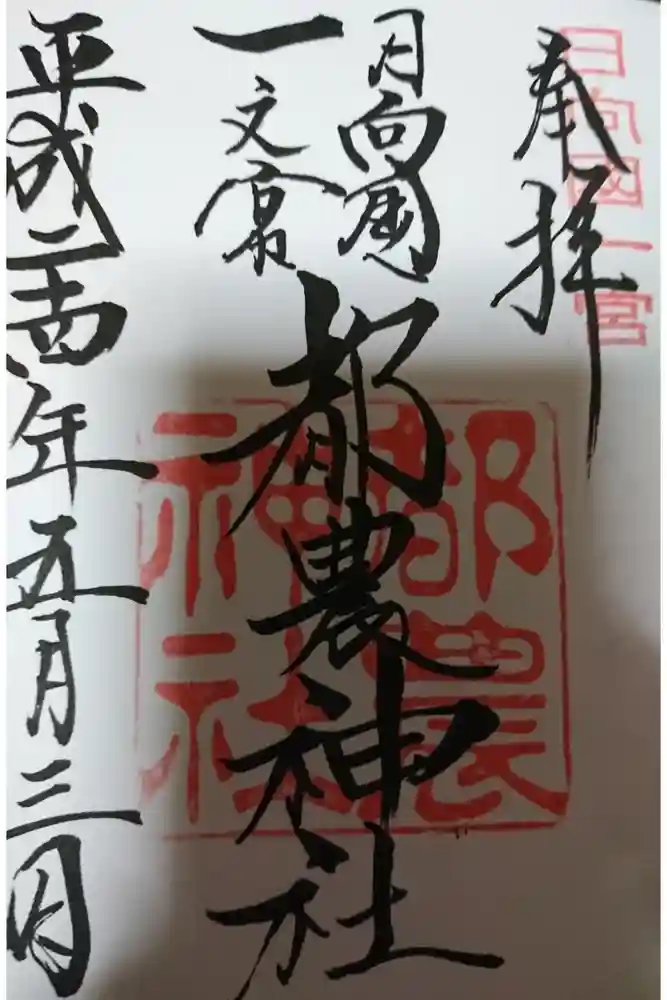 日向国一宮
奉拝
日向國
一之宮
都農神社
都農神社
平成二十四年五月三日